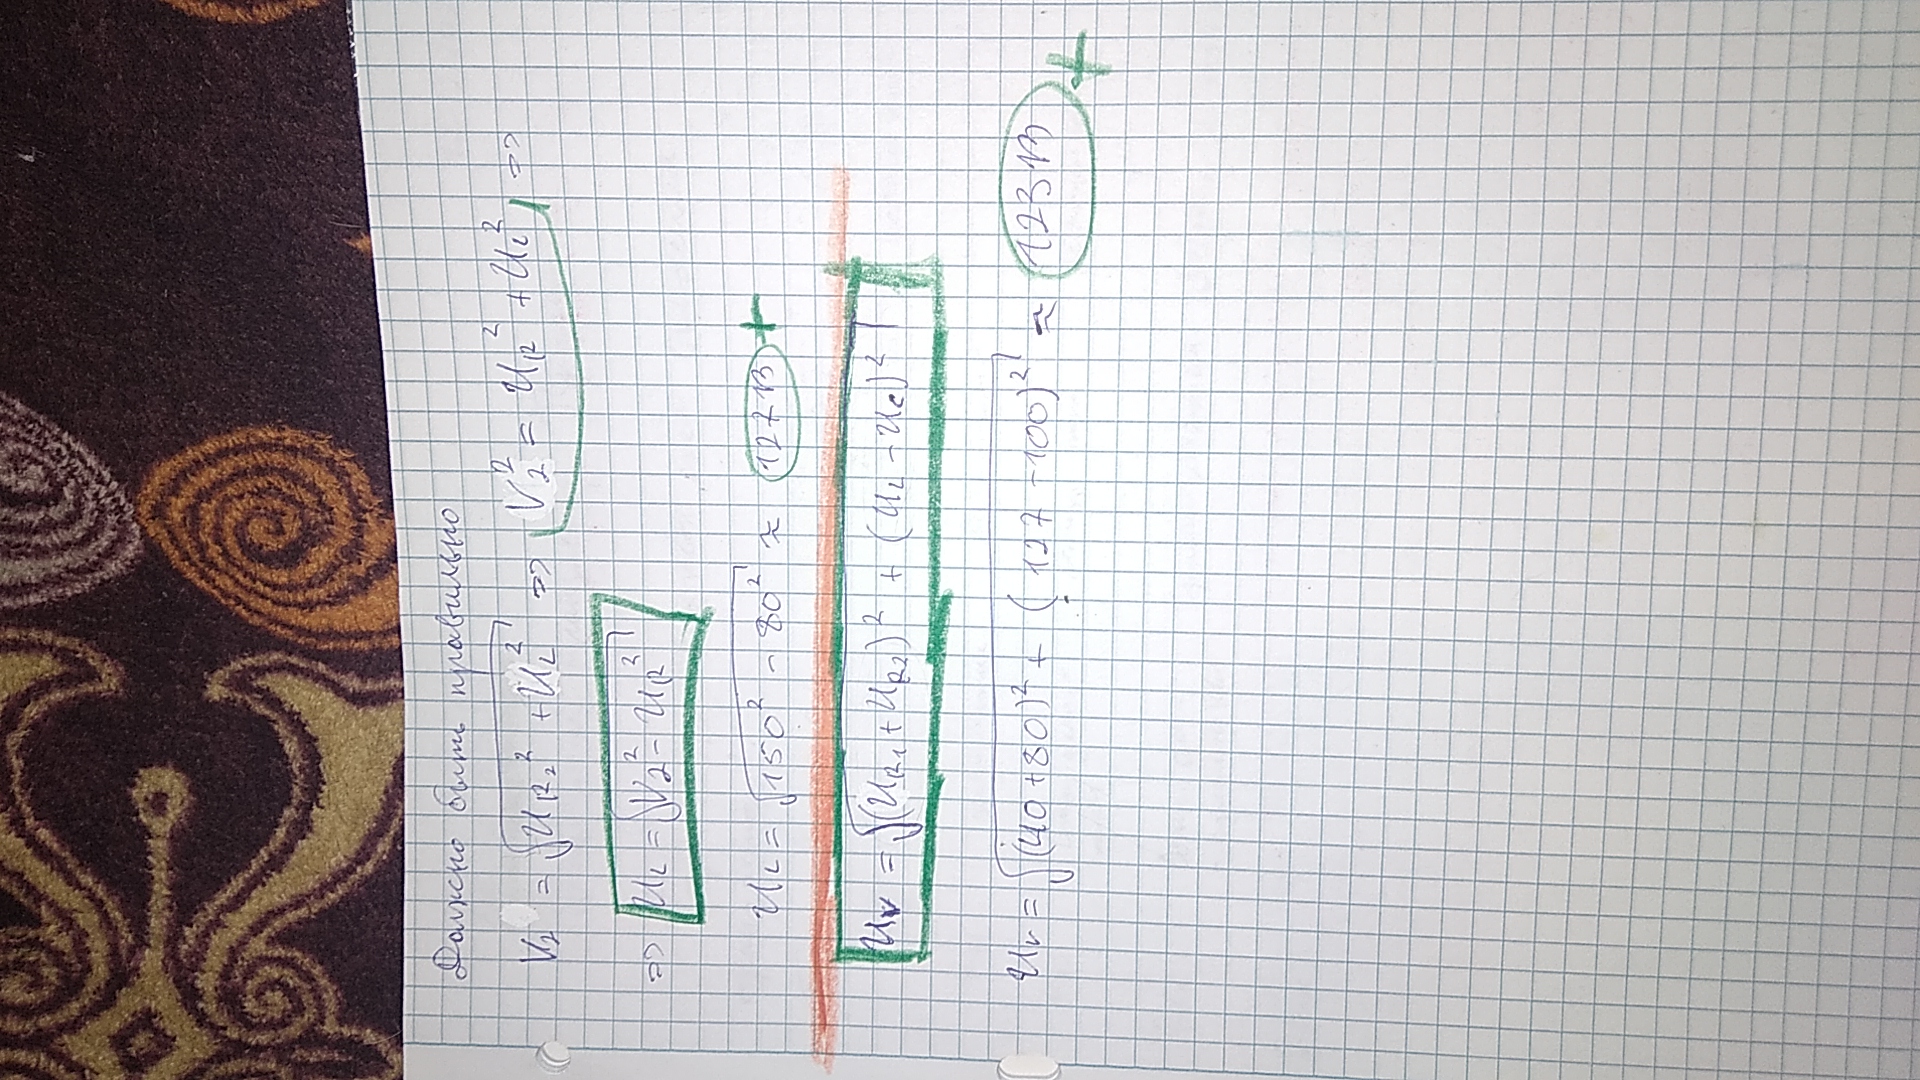 Должно быть правильно
V₂ = √(U_R₂² + U_L²) => V₂² = U_R² + U_L² =>
=> U_L = √(V₂² - U_R²)
U_L = √(150² - 80²) ≈ 127 В +
U_V = √((U_R₁ + U_R₂)² + (U_L - U_C)²)
U_V = √((40 + 80)² + (127 - 100)²) ≈ 123 В +